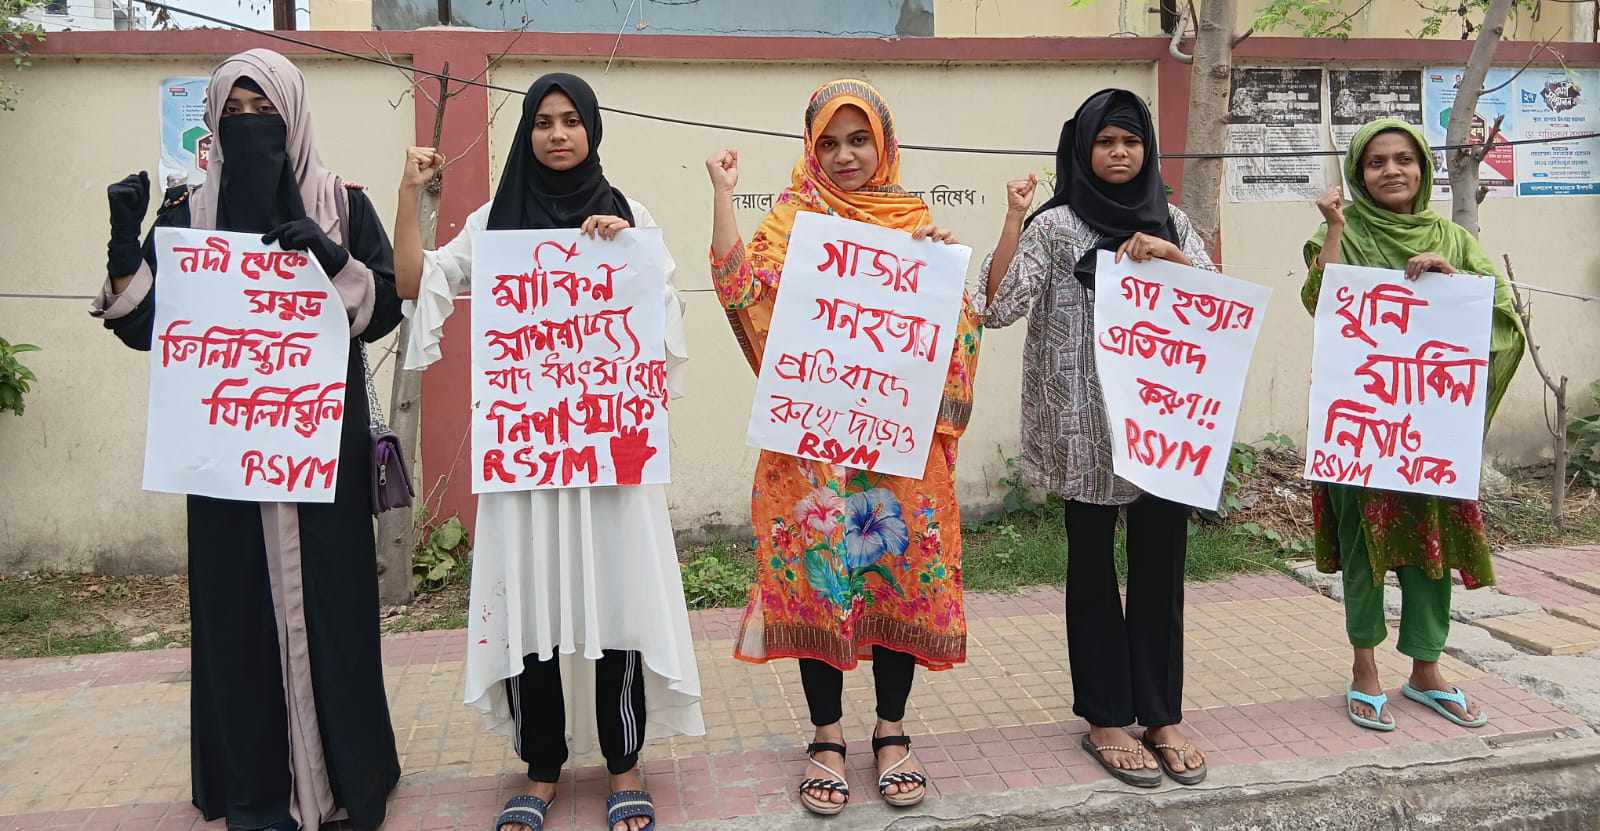 নদী থেকে
সমুদ্র
ফিলিস্তিনি
ফিলিস্তিনি
RSYM
মার্কিন
সাম্রাজ্য
বাদ ধ্বংস হোক
নিপাত যাক
RSYM
গাজার
গনহত্যার
প্রতিবাদে
রুখে দাঁড়াও
RSYM
গণ হত্যার
প্রতিবাদ
করুণ!!
RSYM
খুনি
মার্কিন
নিপাত
RSYM যাক
দেয়ালে
নিষেধ।